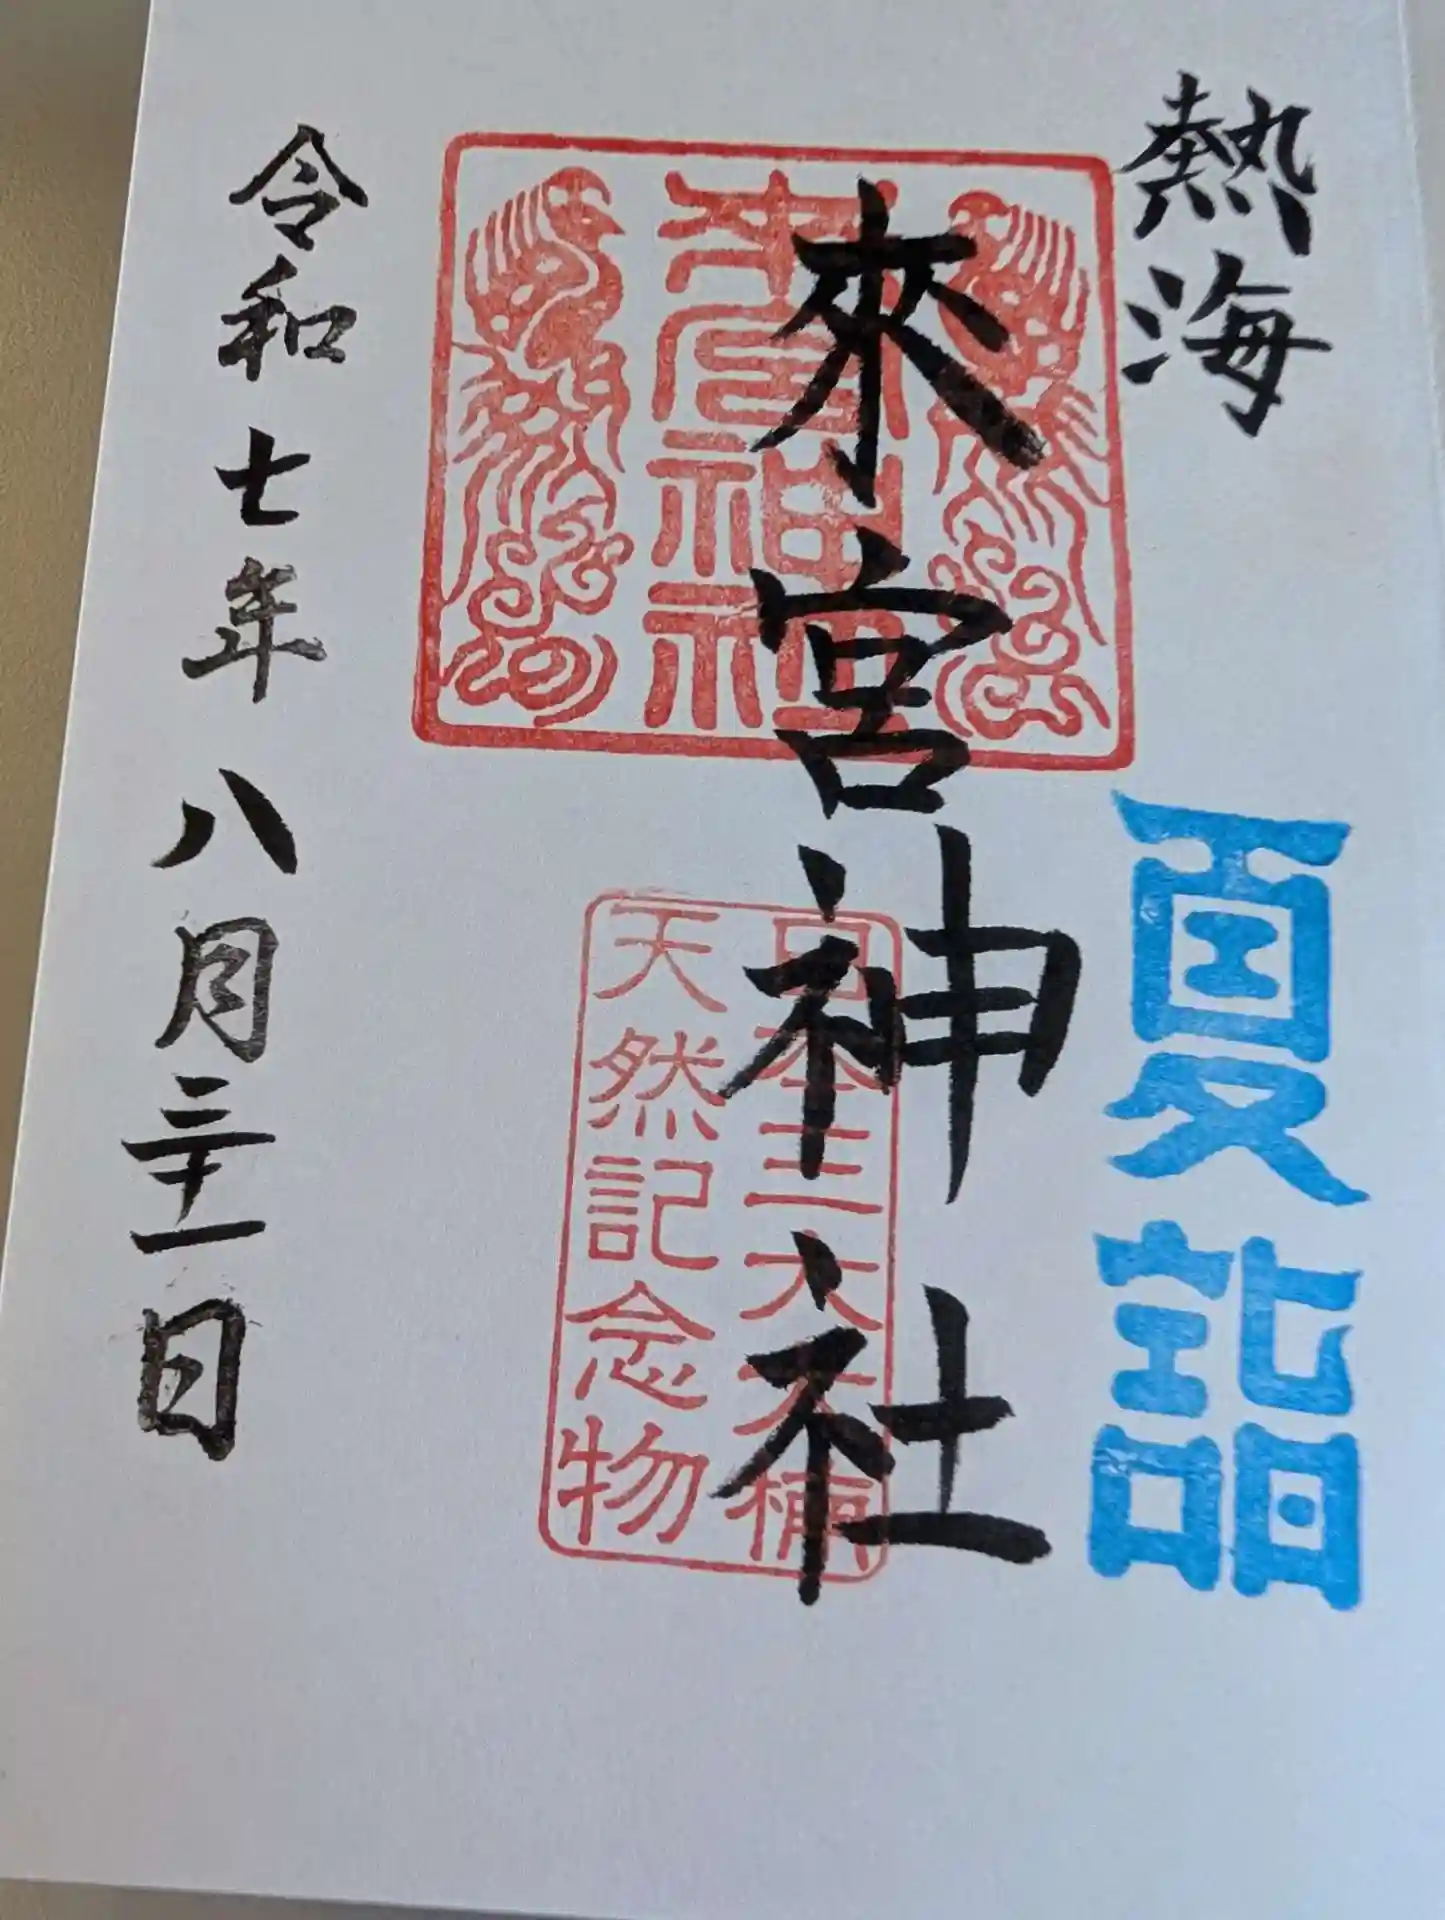 熱海
夏詣
來宮神社
來宮神社
日本三大大楠
天然記念物
令和七年八月三十一日